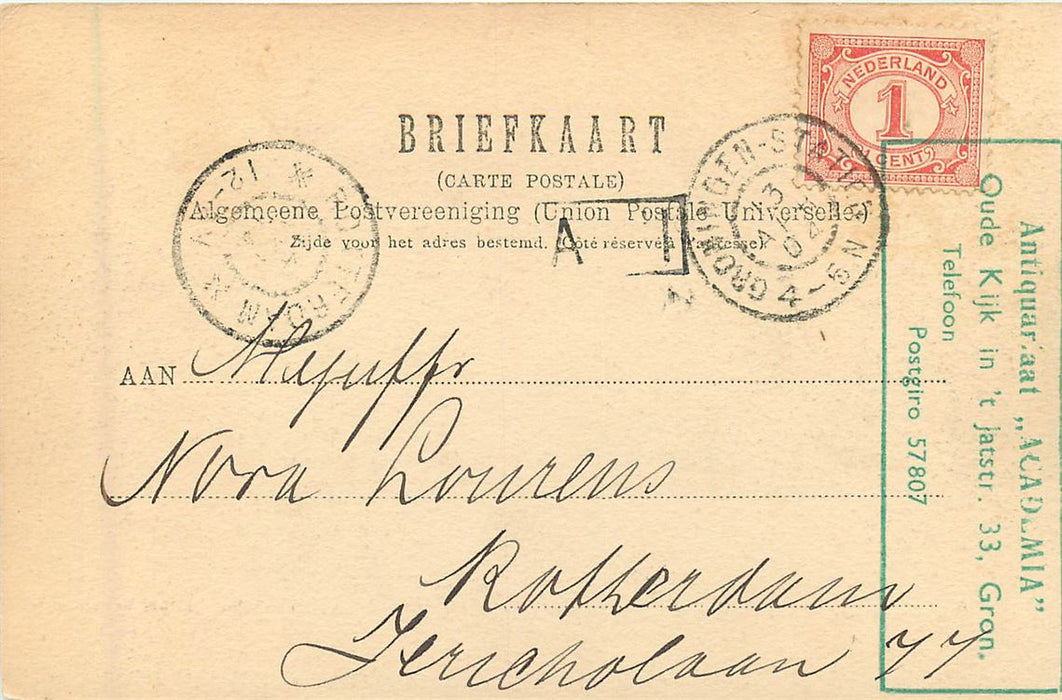 NEDERLAND
1
CENT
BRIEFKAART
(CARTE POSTALE)
Algemeene Postvereeniging (Union Postale Universelle)
Zijde voor het adres bestemd. (Côté réservé à l'adresse)
GRONINGEN-STATION
4-5 N
ROTTERDAM
12-1V
A
AAN Mejuffr
Nora Lourens
Rotterdam
Jericholaan 77
Antiquariaat „ACADEMIA”
Oude Kijk in 't jatstr. 33, Gron.
Telefoon
Postgiro 57807